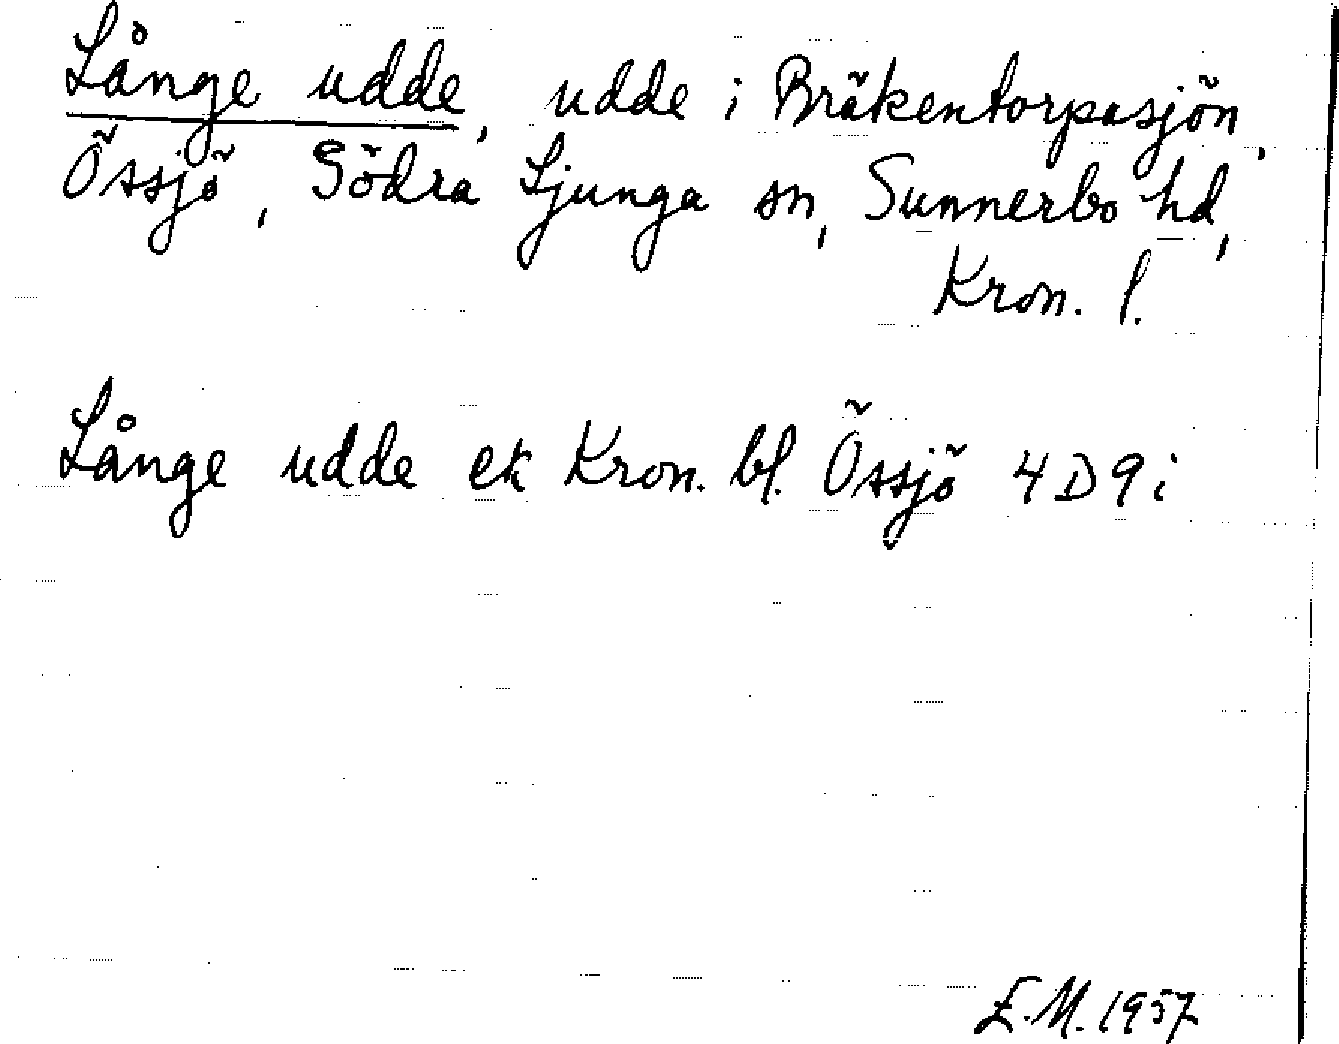 Långe udde, udde i Bräkentorpasjön,
Össjö, Södra Ljunga sn, Sunnerbo hd,
Kron. l.
Långe udde ek Kron. bl. Össjö 4D9i
E.M. 1957